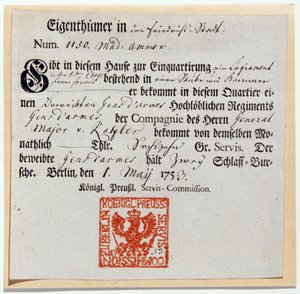 Eigenthümer in der Friedrichs Stadt.
Num. 1180. Mad: Ammon.
Gibt in diesem Hause zur Einquartirung ein Logiament
bestehend in einer Stube und Kammer
er bekommt in diesem Quartier ei
nen beweibten Gensd'armes Hochlöblichen Regiments
Gensd'armes der Compagnie des Herrn General
Major v. Katzler bekommt von demselben Mo-
nathlich — Thlr. Sechszehn Gr. Servis. Der
beweibte Gensd'armes hält Zwey Schlaff-Bur-
sche. Berlin, den 1. May 1753.
Königl. Preußl. Servis-Commission.
KOENIGL. PREUSS. SERVIS COMMISSION ZU BERLIN